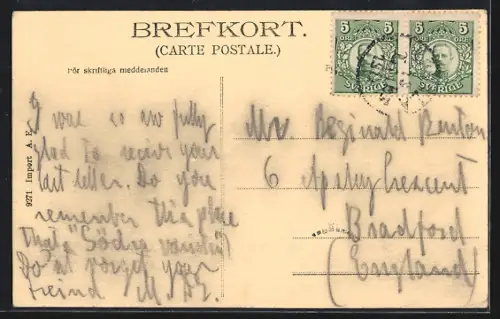 BREFKORT.
(CARTE POSTALE.)
För skriftliga meddelanden
5 5
ÖRE
SVERIGE
5 5
ÖRE
SVERIGE
9271 Import A. E.
I was so awfully
glad to receive your
last letter. Do you
remember this place
that "Södra
Do not forget your
freind M.
Mr Reginald Renton
6 Apsley Crescent
Bradford
(England)